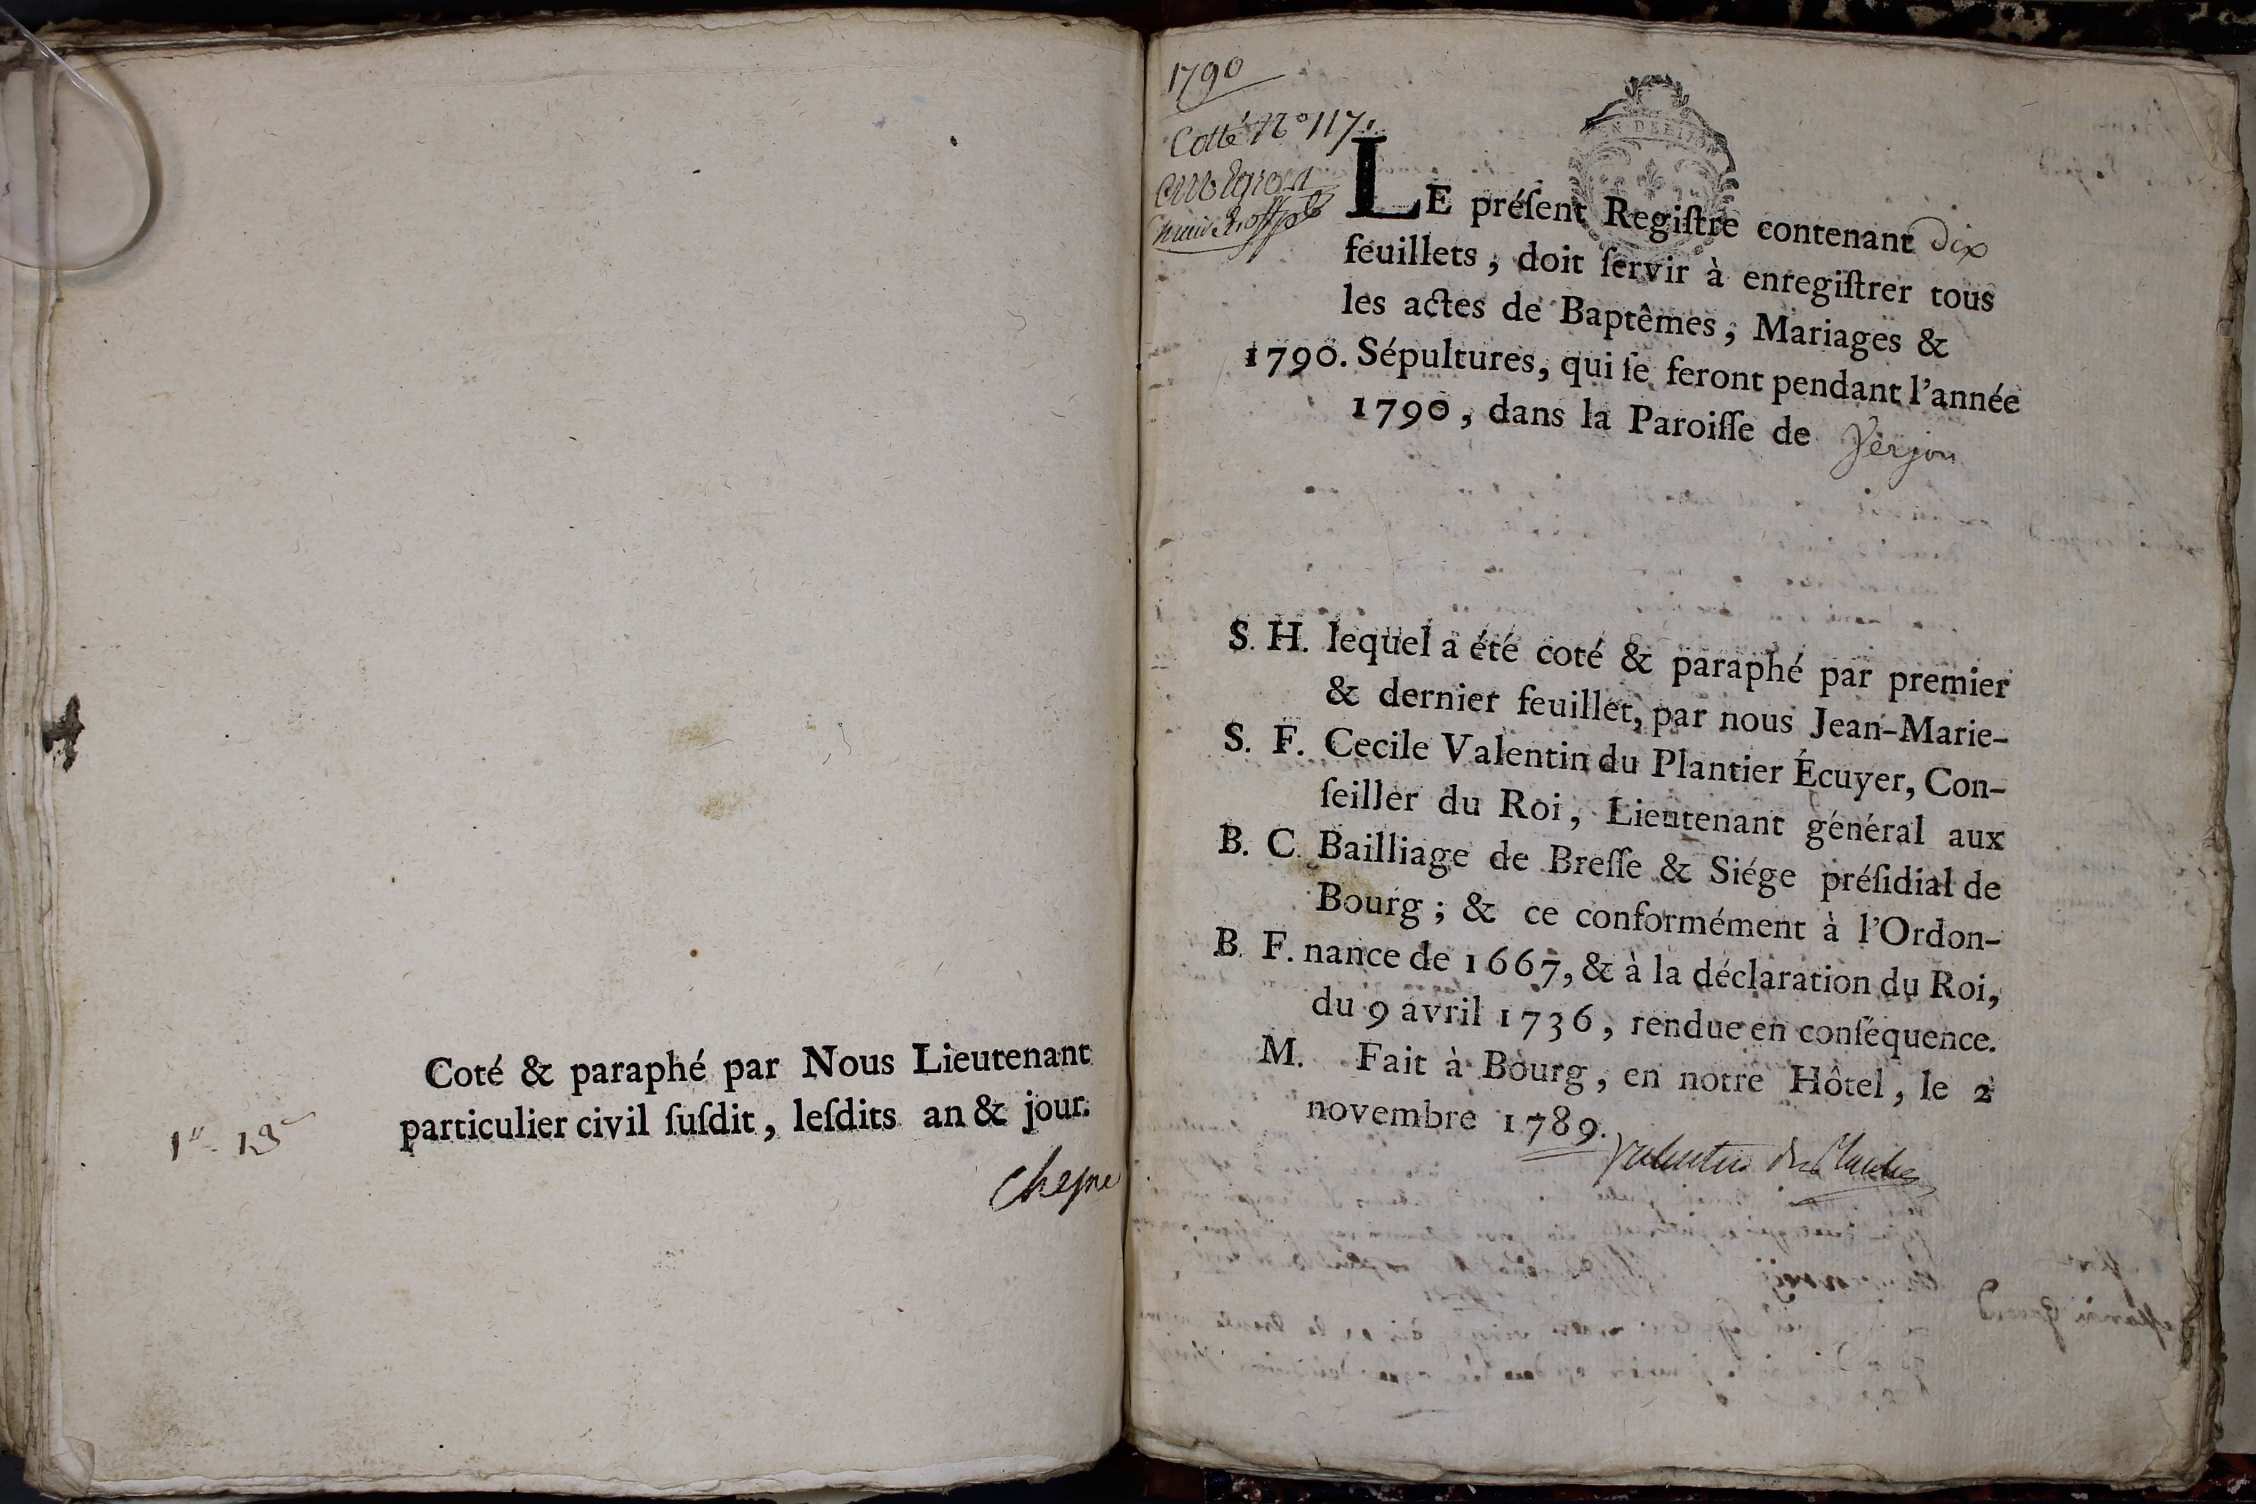 Coté & paraphé par Nous Lieutenant
particulier civil ſuſdit, leſdits an & jour.
Cheyne
1790
Cotté N° 117.
LE préſent Regiſtre contenant dix
feuillets, doit ſervir à enregiſtrer tous
les actes de Baptêmes, Mariages &
1790. Sépultures, qui ſe feront pendant l'année
1790, dans la Paroiſſe de Verjon
S. H. lequel a été coté & paraphé par premier
& dernier feuillet, par nous Jean-Marie-
S. F. Cecile Valentin du Plantier Écuyer, Con-
ſeiller du Roi, Lieutenant général aux
B. C. Bailliage de Breſſe & Siége préſidial de
Bourg; & ce conformément à l'Ordon-
B. F. nance de 1667, & à la déclaration du Roi,
du 9 avril 1736, rendue en conſéquence.
M. Fait à Bourg, en notre Hôtel, le 2
novembre 1789.
Valentin du Plantier